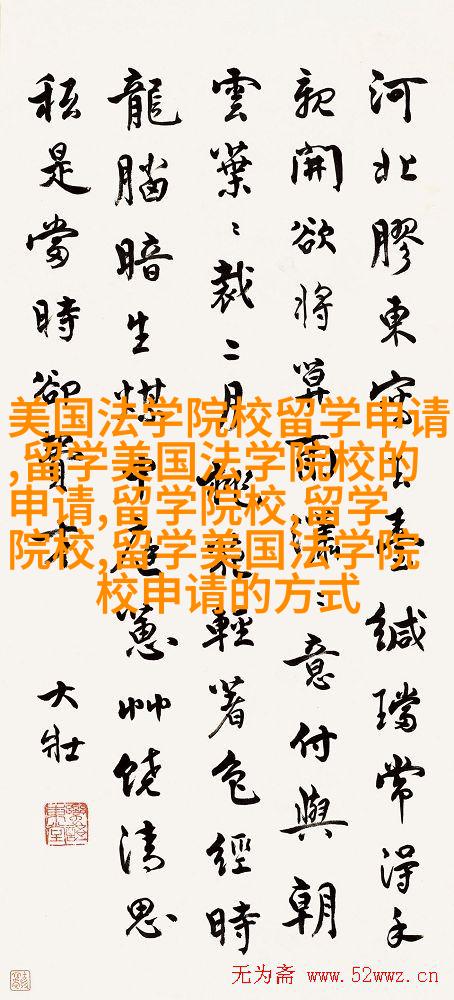 河北膠東土臺緘璫常得手
親開欲將雨瀟ミ意付與朝
雲葉ミ裁二月輕著色經時
龍腦暗生煤蔥艸饒清思
是當時卻
大壯
美国法学院校留学申请
,留学美国法学院校的
申请,留学院校,留学
院校,留学美国法学院
校申请的方式
无为斋 www.52wwz.cn